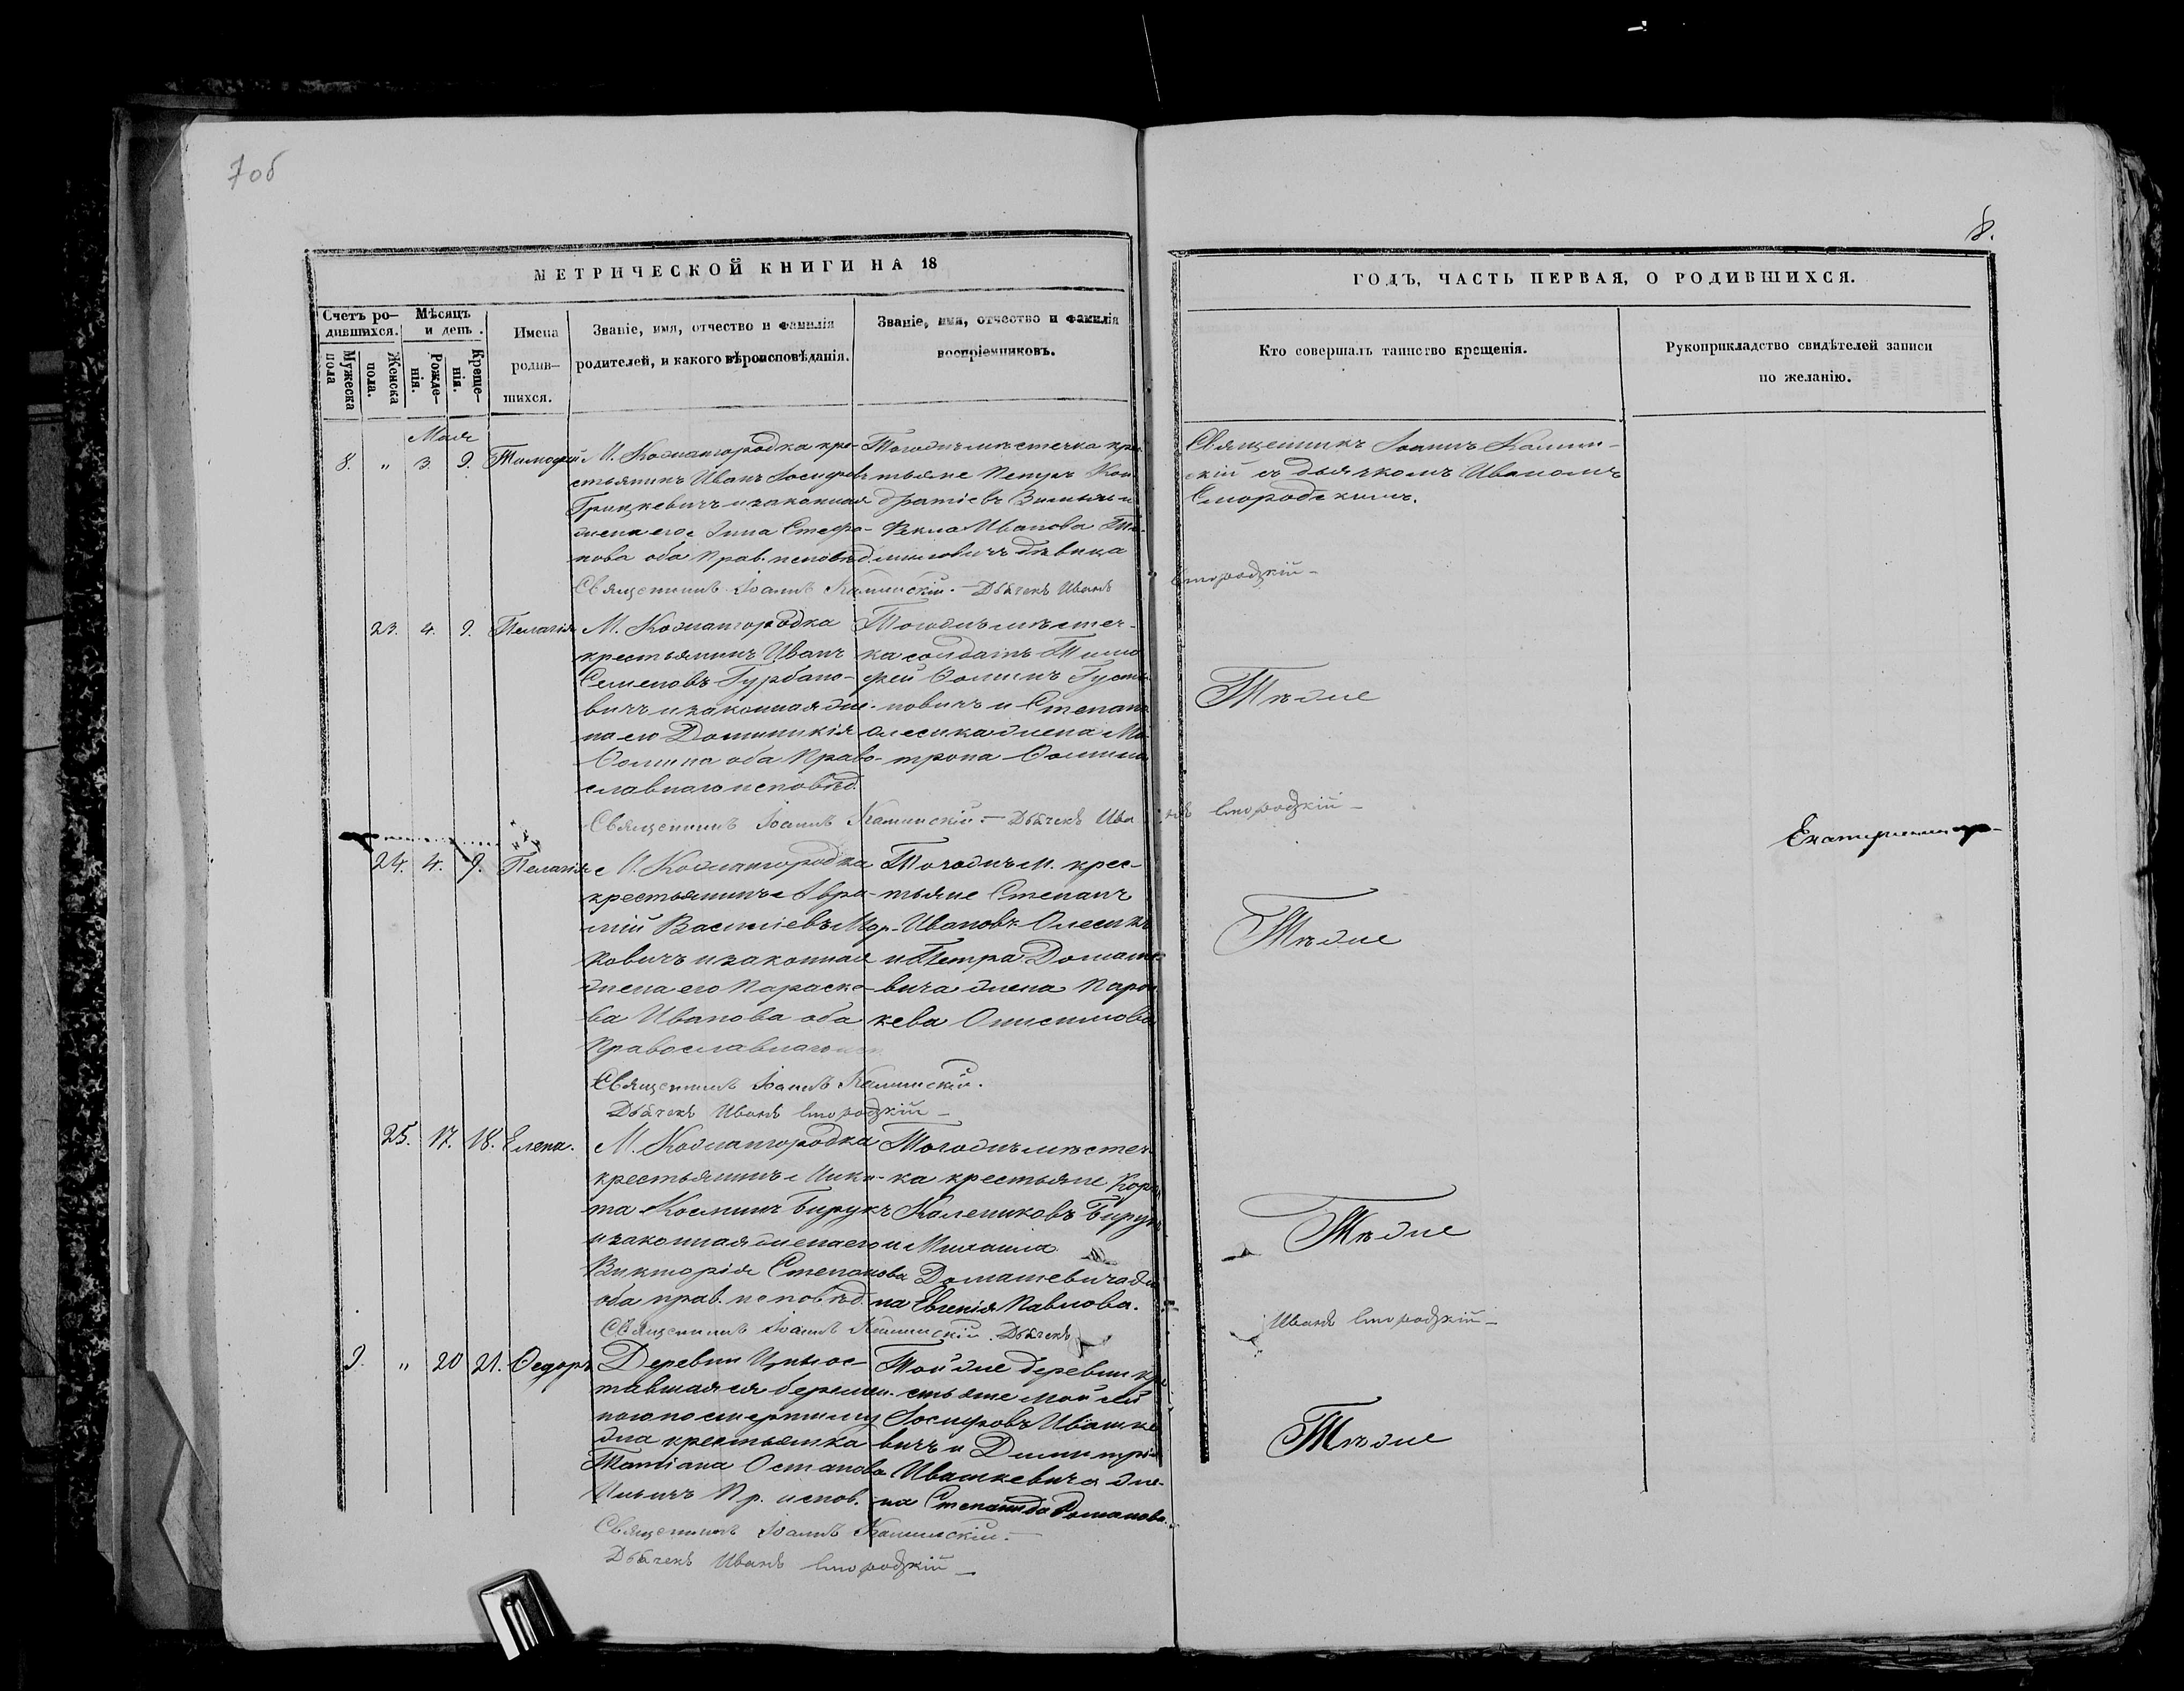 7 об
8.
МЕТРИЧЕСКОЙ КНИГИ НА 18
ГОДЪ, ЧАСТЬ ПЕРВАЯ, О РОДИВШИХСЯ.
Счетъ ро-
дившихся.
Мужеска
пола
Женска
пола.
Мѣсяцъ
и день.
Рожде-
нія.
Креще-
нія.
Имена
родив-
шихся.
Званіе, имя, отчество и фамилія
родителей, и какого вѣроисповѣданія.
Званіе, имя, отчество и фамилія
воспріемниковъ.
Кто совершалъ таинство крещенія.
Рукоприкладство свидѣтелей записи
по желанію.
Мая
8. " 3. 9. Тимофей
М. Кожангородка кре-
стьянинъ Иванъ Іосифовъ
Грицкевичъ и законная
жена его Анна Стефа-
нова оба Прав. исповѣд.
Тогожъ мѣстечка кре
стьяне Петръ
Фекла Иванова
дѣвица
Священникъ Іоаннъ Камин-
скій съ дьячкомъ Иваномъ
Смородскимъ.
Священникъ Іоаннъ Каминскій. - Дьячекъ Иванъ Смородзкій -
23. 4. 9. Пелагія
М. Кожангородка
крестьянинъ Иванъ
Семеновъ Гурбано-
вичъ и законная же-
на его Доминикія
Фомина оба Право-
славнаго исповѣд.
Тогожъ мѣстеч-
ка солдатъ Тимо
фей Фоминъ
новичъ и Степана
Олесика жена Ма
трона Фомина
Тѣже
Священникъ Іоаннъ Каминскій - Дьячекъ Иванъ Смородзкій -
24. 4. 9. Пелагія
М. Кожангородка
крестьянинъ Авра-
мій Василіевъ Мар-
ковичъ и законная
жена его Параске-
ва Иванова оба
Православнаго
Тогожъ М. крес-
тьяне Степанъ
Ивановъ Олесикъ
и Петра Домаш-
вича жена Парас
кева Онисимова
Тѣже
Священникъ Іоаннъ Каминскій.
Дьячекъ Иванъ Смородзкій -
25. 17. 18. Елена.
М. Кожангородка
крестьянинъ Ники-
та Косминъ Бирукъ
и законная жена его
Викторія Степанова
оба прав. исповѣд.
Тогожъ мѣстеч
ка крестьяне
Калениковъ Бирукъ
и Михаила
Домашевича же
на Евгенія Павлова.
Тѣже
Священникъ Іоаннъ Каминскій. Дьячекъ Иванъ Смородзкій -
9. " 20 21. Ѳедоръ
Деревни Цны ос-
тавшаяся беремен-
ною по смерти му
жа крестьянка
Татіана Остапова
Ильичъ Пр. испов.
Той же деревни кре
стьяне Мойсей
Іосифовъ Ивашке
вичъ и Димитрія
Ивашкевича же-
на Степанида Романова.
Тѣже
Священникъ Іоаннъ Каминскій. -
Дьячекъ Иванъ Смородзкій -